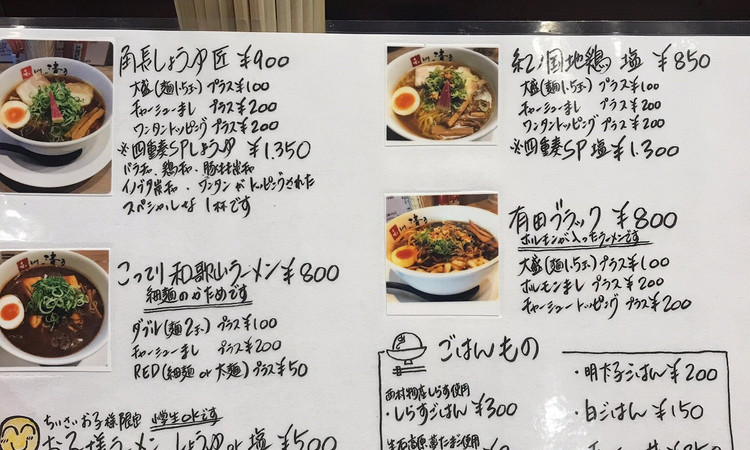 角長しょうゆ匠 ¥900
大盛(麺1.5玉) プラス¥100
チャーシューまし プラス¥200
ワンタントッピング プラス¥200
※四重奏SPしょうゆ ¥1.350
バラチャー、鶏チャー、豚
イノブタ ワンタンがトッピングされた
スペシャルな1杯です
こってり和歌山ラーメン¥800
細麺のかためです
ダブル(麺2玉) プラス¥100
チャーシューまし プラス¥200
RED(細麺 or 太麺)プラス¥50
ちいさいお子様限定 小学生okです
お子様ラーメン しょうゆor塩 ¥500
紀ノ国地鶏 塩 ¥850
大盛(麺1.5玉) プラス¥100
チャーシューまし プラス¥200
ワンタントッピング プラス¥200
※四重奏SP 塩 ¥1.300
有田ブラック ¥800
ホルモンが入ったラーメンです
大盛(麺1.5玉) プラス¥100
ホルモンまし プラス¥200
チャーシュートッピング プラス¥200
ごはんもの
西村物産しらす使用
・しらすごはん ¥300
・明太子ごはん ¥200
・白ごはん ¥150